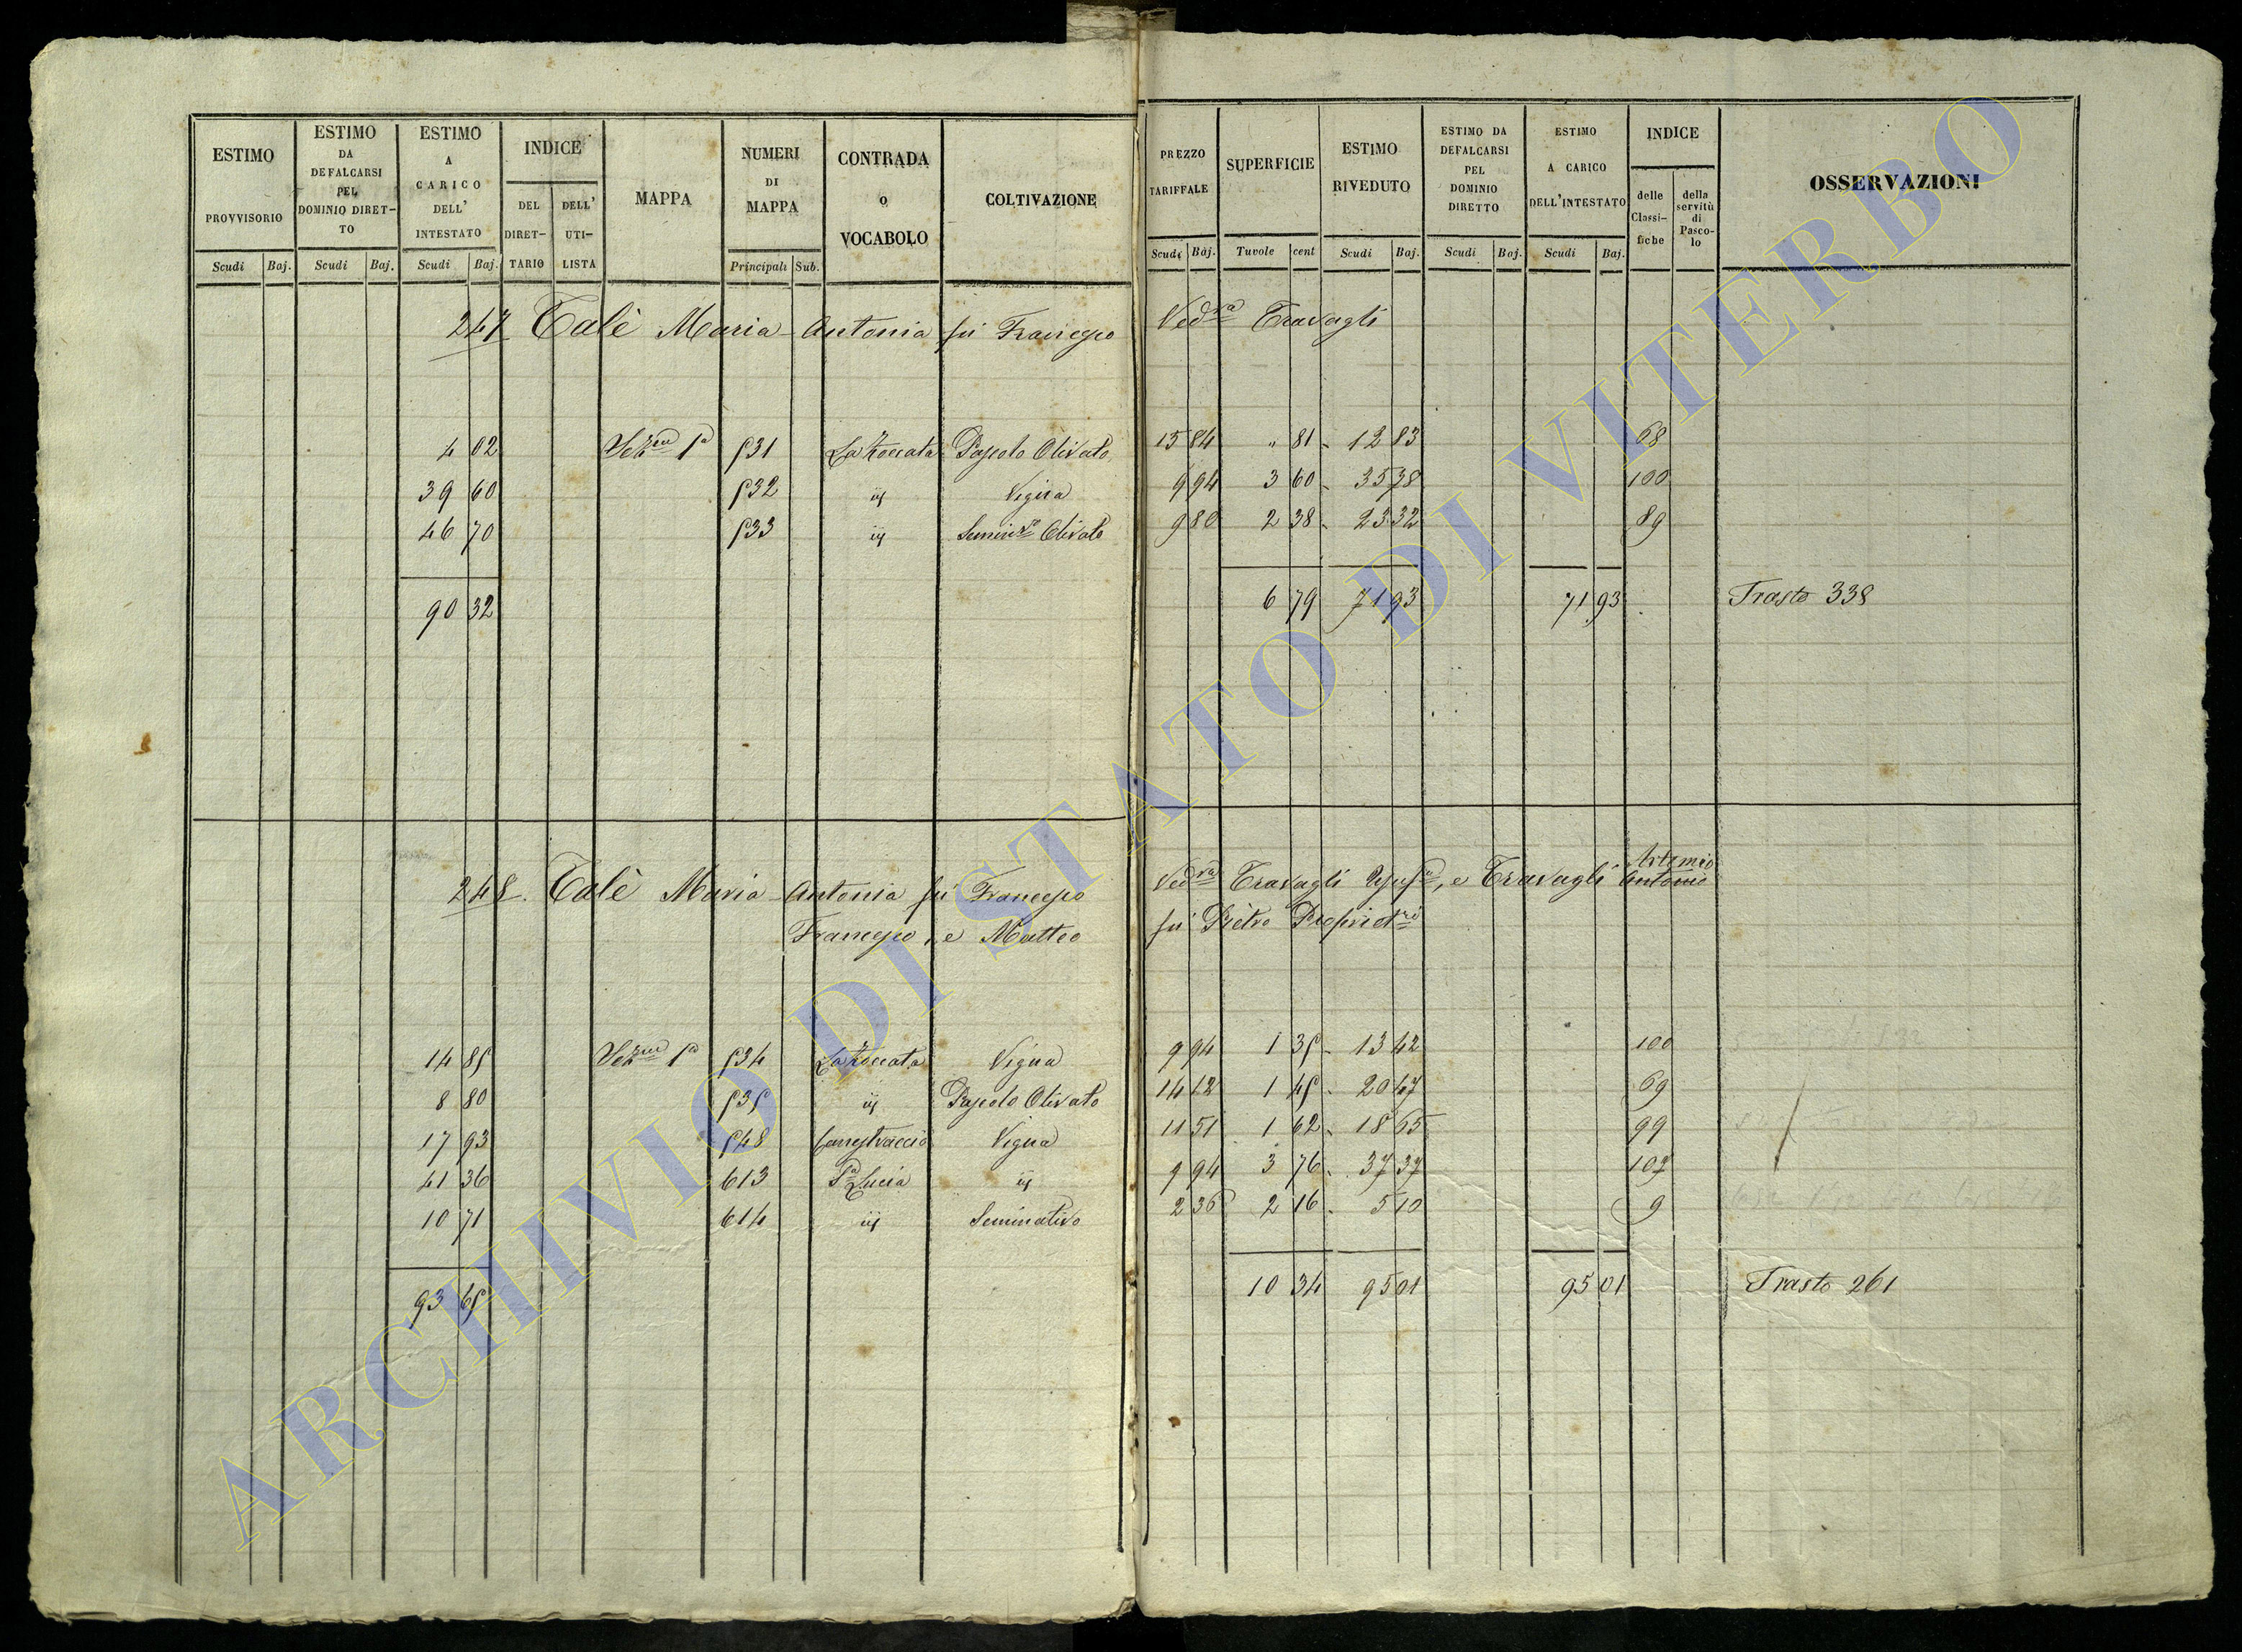 ESTIMO PROVVISORIO
ESTIMO DA DEFALCARSI PEL DOMINIO DIRET-TO
ESTIMO A CARICO DELL' INTESTATO
INDICE
DEL DIRET-TARIO
DELL' UTI-LISTA
MAPPA
NUMERI DI MAPPA
CONTRADA o VOCABOLO
COLTIVAZIONE
PREZZO TARIFFALE
SUPERFICIE
ESTIMO RIVEDUTO
ESTIMO DA DEFALCARSI PEL DOMINIO DIRETTO
ESTIMO A CARICO DELL'INTESTATO
INDICE
delle Classi-fiche
della servitù di Pasco-lo
OSSERVAZIONI
Scudi Baj. Scudi Baj. Scudi Baj. Principali Sub. Scudi Baj. Tavole cent Scudi Baj. Scudi Baj. Scudi Baj.
247 Talè Maria Antonia fù Francesco Vedva Travagli
4 02 Sezne 1a 531 La Roccata Pascolo Olivato 15 84 " 81 12 83 68
39 60 532 iij Vigna 9 94 3 60 35 78 100
46 70 533 iij Seminvo Olivato 9 80 2 38 23 32 89
90 32 6 79 71 93 71 93 Trasto 338
248. Talè Maria Antonia fù Francesco Vedva Travagli Usufa, e Travagli Artemio Antonio
Francesco, e Matteo fù Pietro Proprietri
14 85 Sezne 1a 534 La Roccata Vigna 9 94 1 35 13 42 100
8 80 535 iij Pascolo Olivato 14 12 1 45 20 47 69
17 93 548 Vigna 11 51 1 62 18 65 99
41 36 613 Sa Lucia iij 9 94 3 76 37 37 102
10 71 614 iij Seminativo 2 36 2 16 5 10 9
93 65 10 34 95 01 95 01 Trasto 261
ARCHIVIO DI STATO DI VITERBO